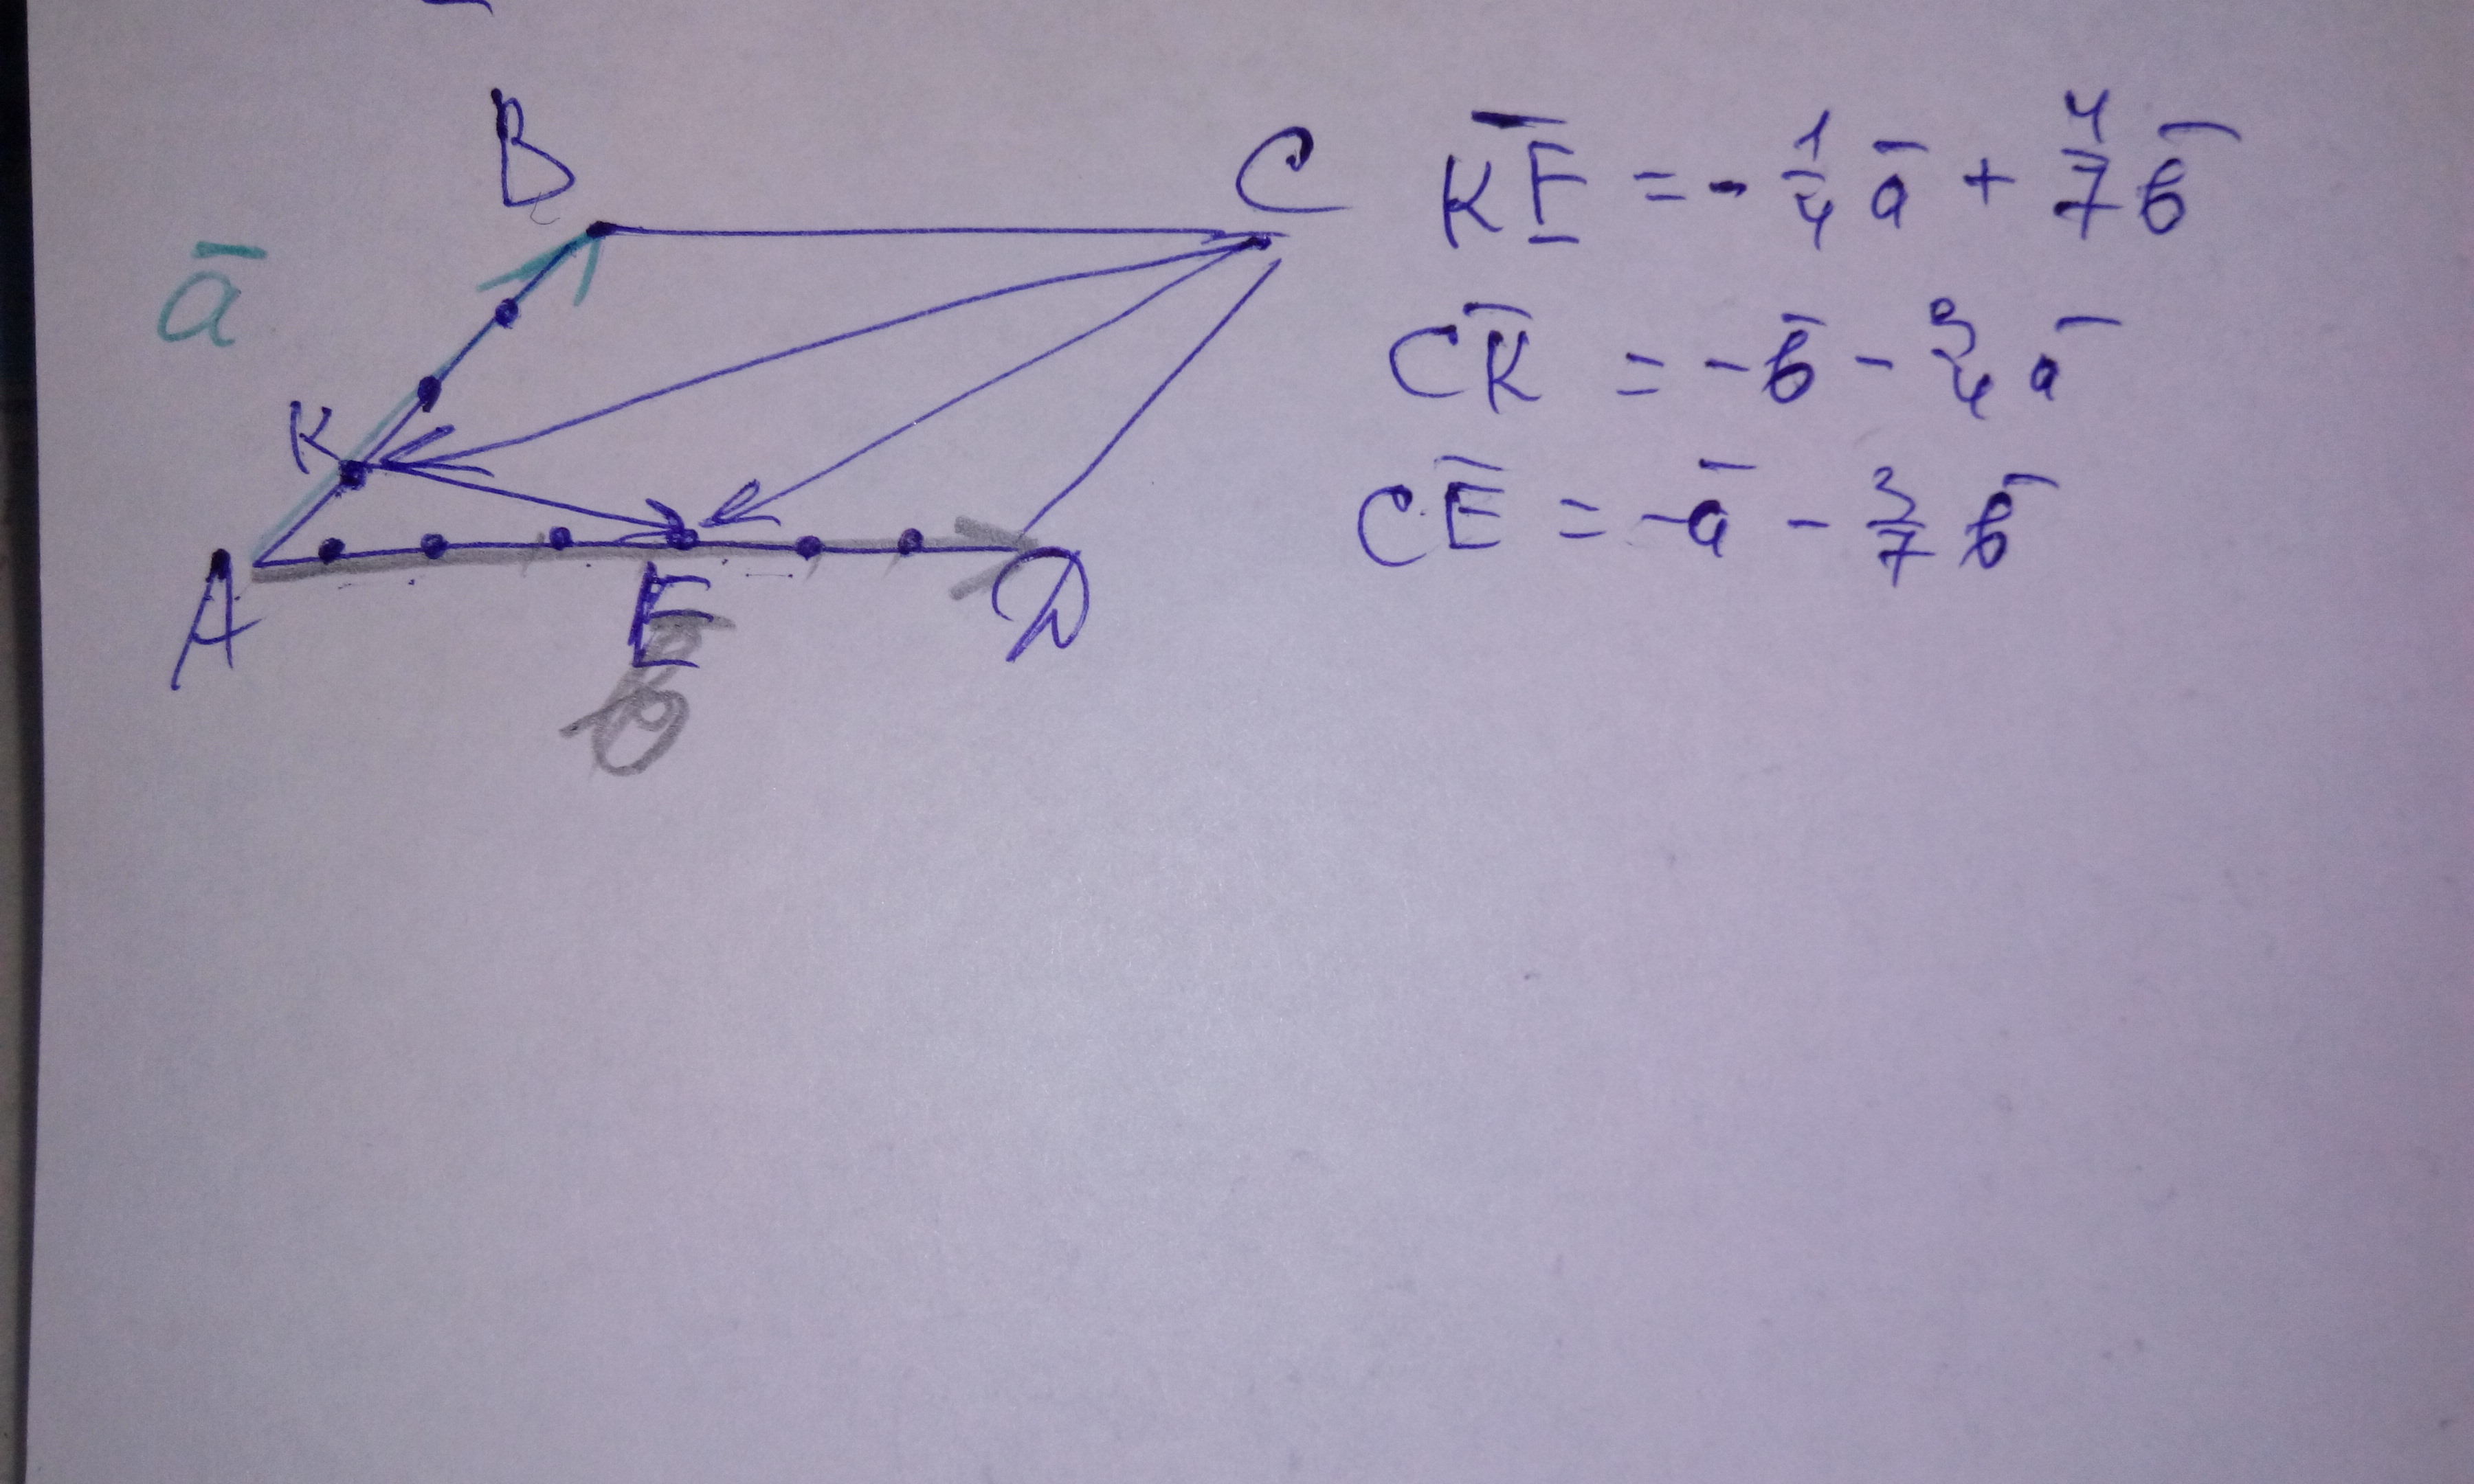 B
C
ā
K
A
E
D
b̄
K̅E̅ = - 1/4 ā + 4/7 b̄
CK̅ = - b̄ - 3/4 ā
CE̅ = - ā - 3/7 b̄